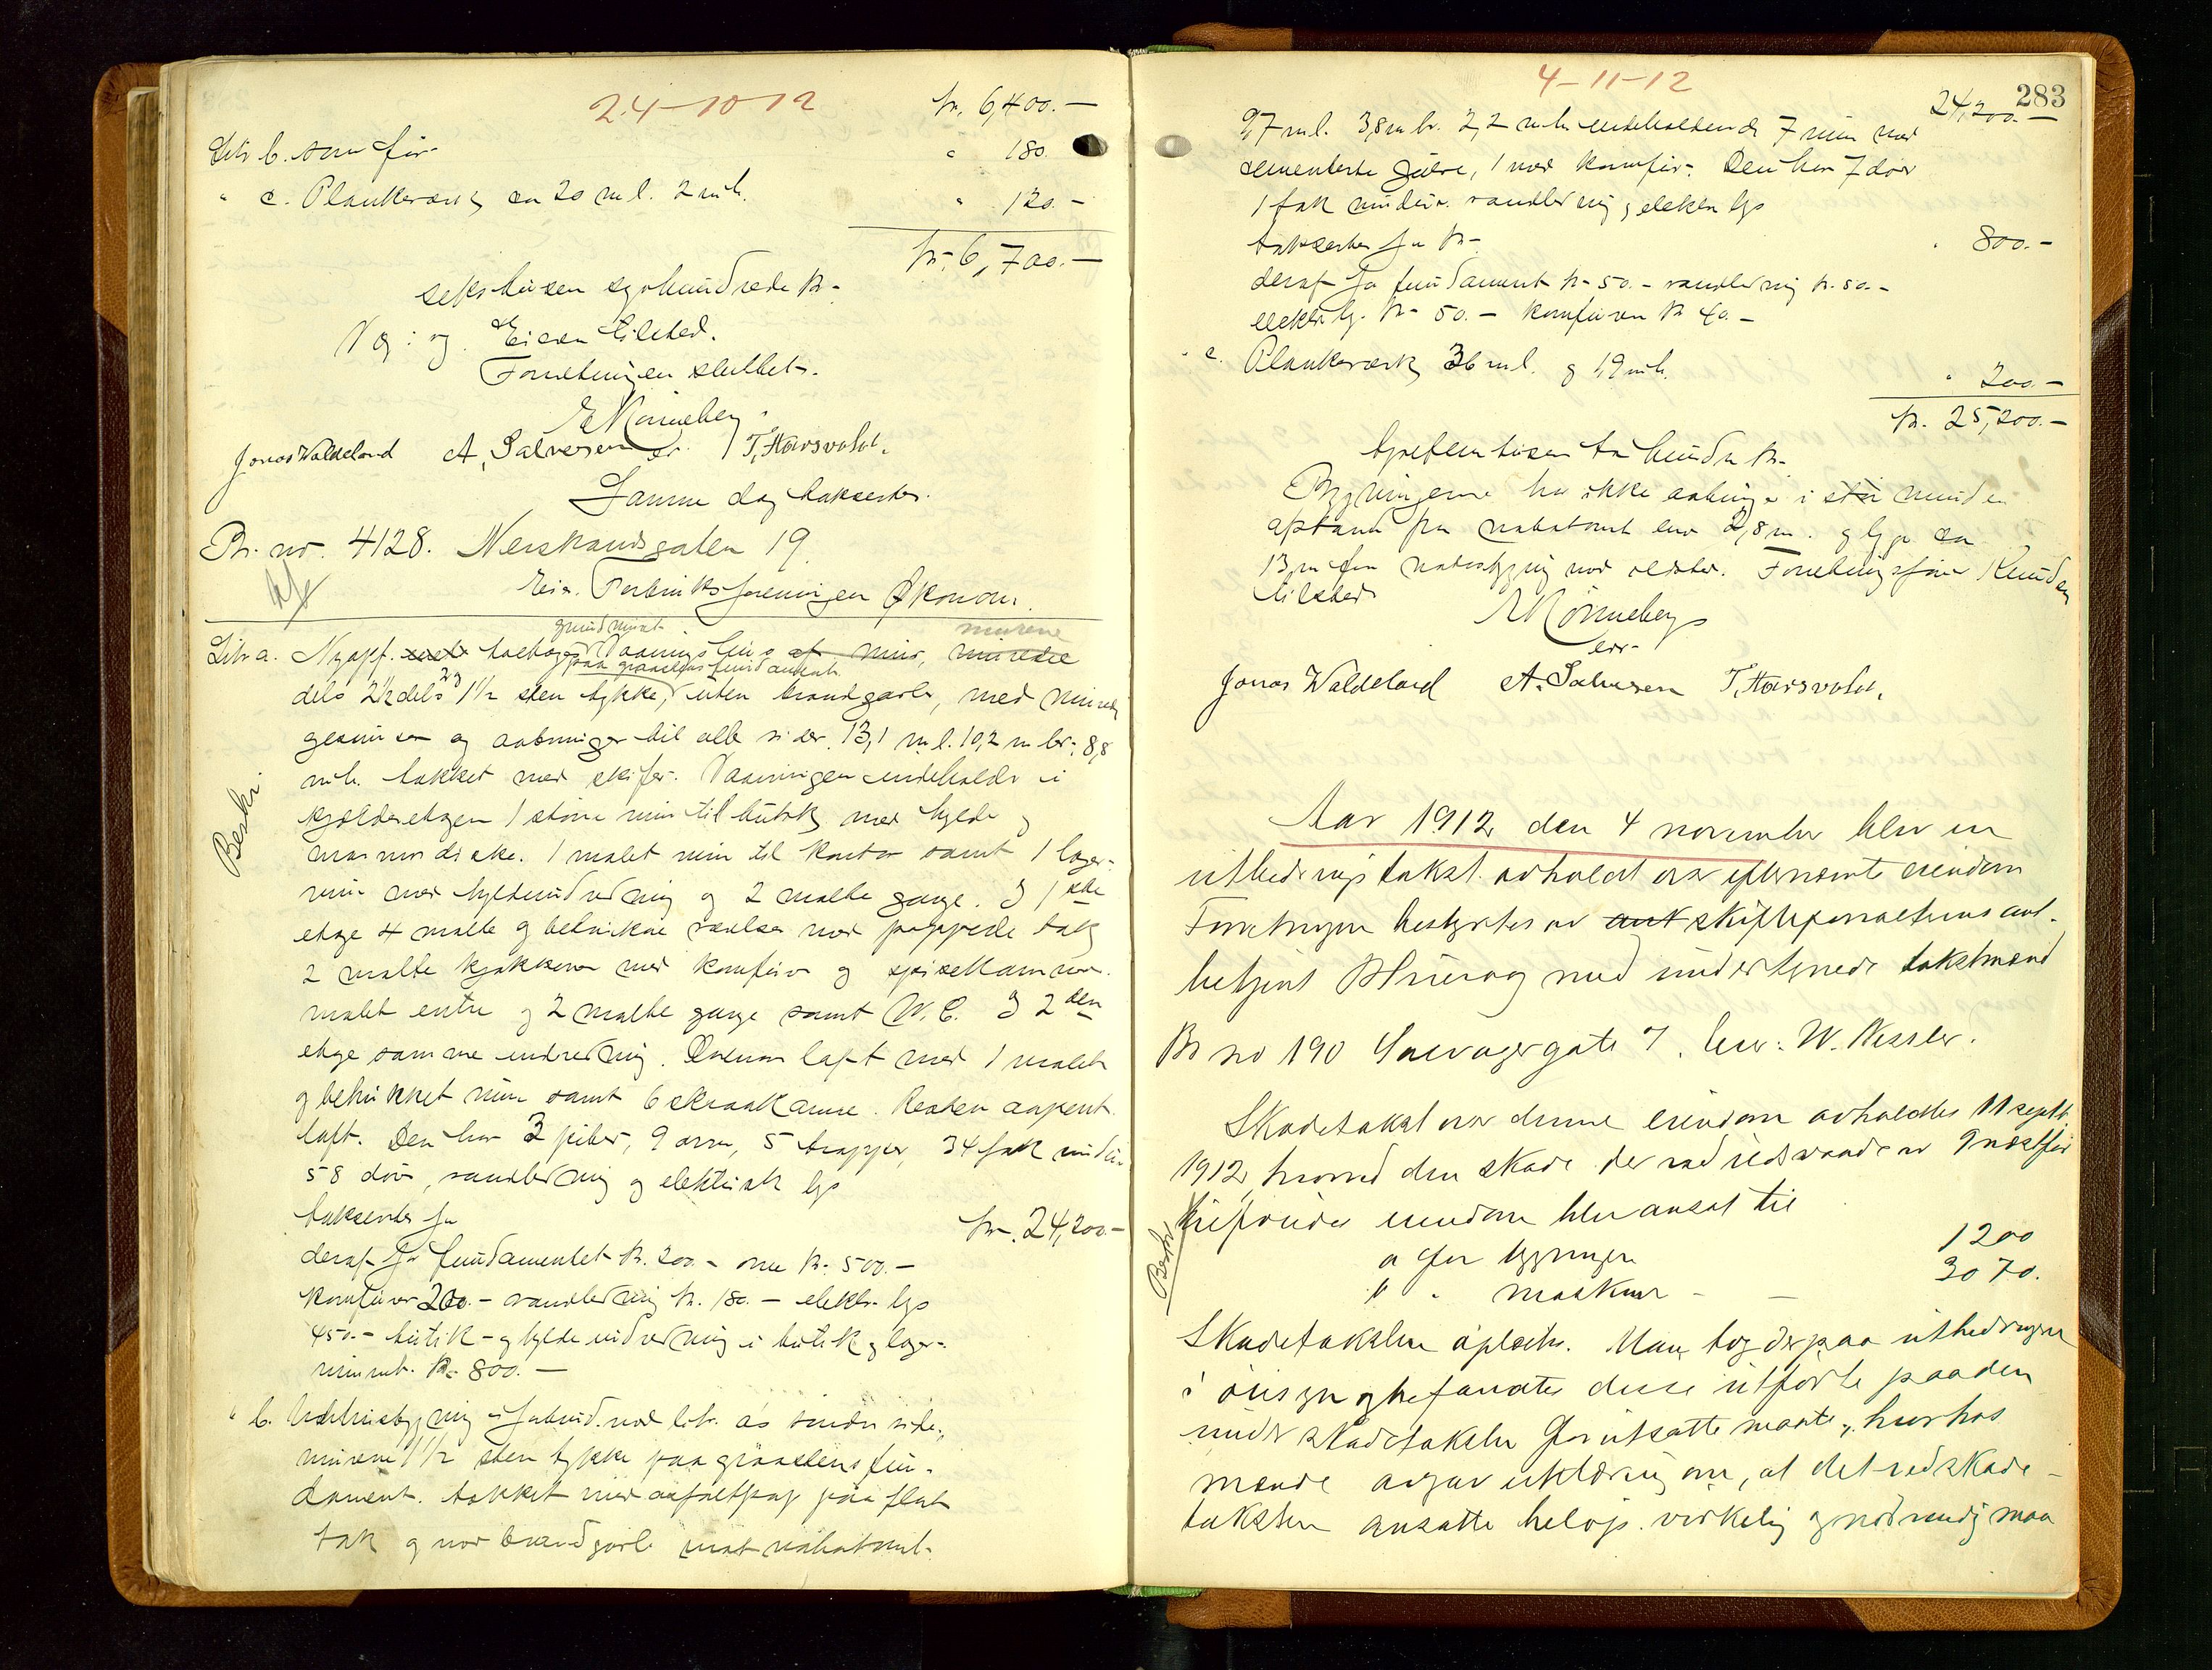 24-10-12
kr. 6,400.-
Litr b. som før
" 180
" c. Plankeværk ca 20 m l. 2 m h.
" 120.-
kr. 6,700.-
sekstusen syvhundrede kr-
V og: og. Eieren tilsted.
Forretningen sluttet.
E Rönneberg
Jonas Waldeland A. Salvesen T. Haarsvold.
Samme dag takserter.
Br. no. 4128. Nerstrandsgaten 19.
Eier. Forbruksforeningen Økonom.
Litr a. Nyopf. toetages Vaaningshus af mur, murene
grundmuret
murene
paa graastens fundament
dels 2½ dels 2 og 1½ sten tykke, uten brandgavle, med murede
gesimser og aabninger til alle sider. 13,1 m l. 10,2 m br. 8,8
m h. takket med skifer. Vaaningen indeholdr i
kjælderetagen 1 større rum til butik med hylde og
marmordiske. 1 malet rum til kontor samt 1 lager-
rum med hyldeindredning og 2 malte gange. I 1ste
etage 4 malte og betrukne værelser med pappede tak
2 malte kjøkkener med komfur og spisekammer.
malet entre og 2 malte gange samt W.C. I 2den
etage samme indredning. Ovenom loft med 1 malet
og betrukket rum samt 6 skraakamre. Resten aapent
loft. Den har 2 piber, 9 ovne, 5 trapper, 34 fak vinduer
58 dører, vandledning og elektrisk lys
takseredes for
kr. 24,200.-
deraf for fundamentet kr. 200.- ovne kr. 500.-
komfurer 200.- vandledning kr. 180.- elektr. lys
450.- butik- og hyldeindredning i butik og lager-
rummet. kr. 800.-
Beskr
" b. Udhusbygning i forbind. med litr. a's søndre side.,
murene 1½ sten tykke paa graastens fun-
dament. takket med asfaltpap paa flat
tak og med brandgavle mot nabotomt.
4-11-12
283
24,200.-
9,7 m l. 3,8 m br. 2,2 m h. indeholdende 7 rum med
sementerte gulve, 1 med komfur. Den har 7 dører
1 fak vinduer. vandledning og elektr lys
takserter for kr-
" 800.-
deraf for fundament kr 50.- vandledning kr. 50.-
elektr ly. kr- 50.- komfuren kr 40.-
" c. Plankeværk 36 m l. og 1,9 m h.
" 200.-
kr. 25,200.-
tyvefemtusen to hundre kr.
Bygningerne har ikke aabninger i mindre
afstand fra nabotomt end 2,8 m. og ligger ca
13 m fra nabobygning med ildsted. Forretningsfører Knudsen
tilsted
E Rönneberg
Jonas Waldeland A. Salvesen T. Haarsvold.
Aar 1912 den 4 november blev en
utbedringstakst avholdt over efternævnte eiendom
Forretningen bestyrtes av skifteforvalterens aut.
betjent med undertegnede takstmænd
Br no 190 Lervigsgate 7. Eier: W. Kessler.
Skadetakst over denne eiendom avholdtes 11 septbr
1912, hvorved den skade der ved ildsvaade av 9 næstfør
tilføiedes eiendom blev ansat til
Beskr
a for bygningen
1200
b " maskiner - -
3070.
Skadetaksten oplæstes. Man tog derpaa utbedringen
i øiesyn og befandtes disse utførte paa den
under skadetaksten forutsatte maate, hvorhos
mænde avgav erklæring om, at det ved skade-
taksten ansatte beløp virkelig og nødvendig maa